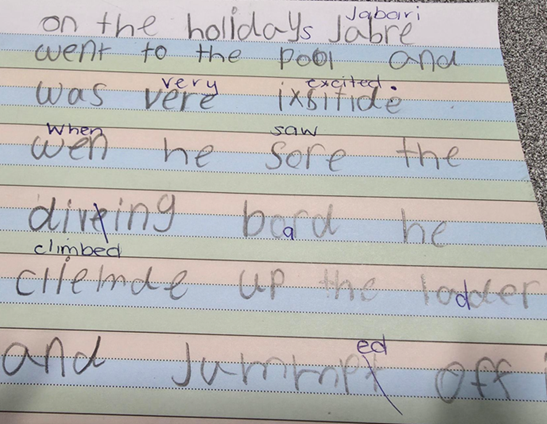 Jabari
on the holidays Jabre
went to the pool and
very excited.
was vere ixsitide.
When saw
wen he sore the
diving board he
climbed
cliemde up the ladder
ed
and Jummpt off